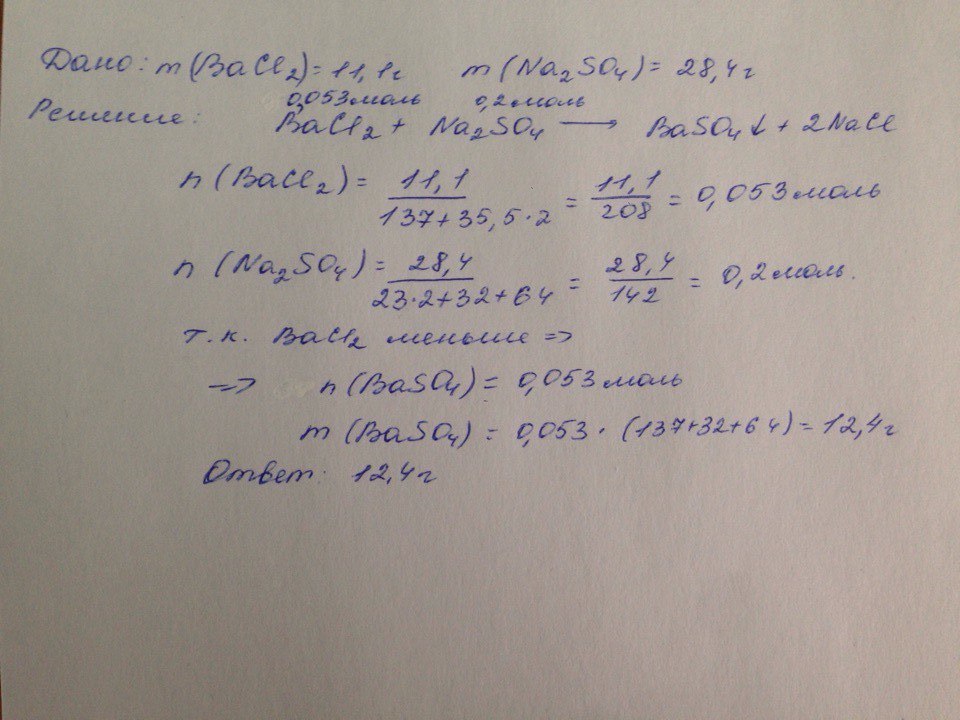 Дано: m(BaCl₂)=11,1г m(Na₂SO₄)= 28,4г
0,053моль 0,2моль
Решение: BaCl₂+ Na₂SO₄ → BaSO₄↓ + 2NaCl
n(BaCl₂)= 11,1/137+35,5·2 = 11,1/208 = 0,053моль
n(Na₂SO₄)= 28,4/23·2+32+64 = 28,4/142 = 0,2моль.
т.к. BaCl₂ меньше =>
=> n(BaSO₄)= 0,053моль
m(BaSO₄)= 0,053·(137+32+64)=12,4г
Ответ: 12,4г